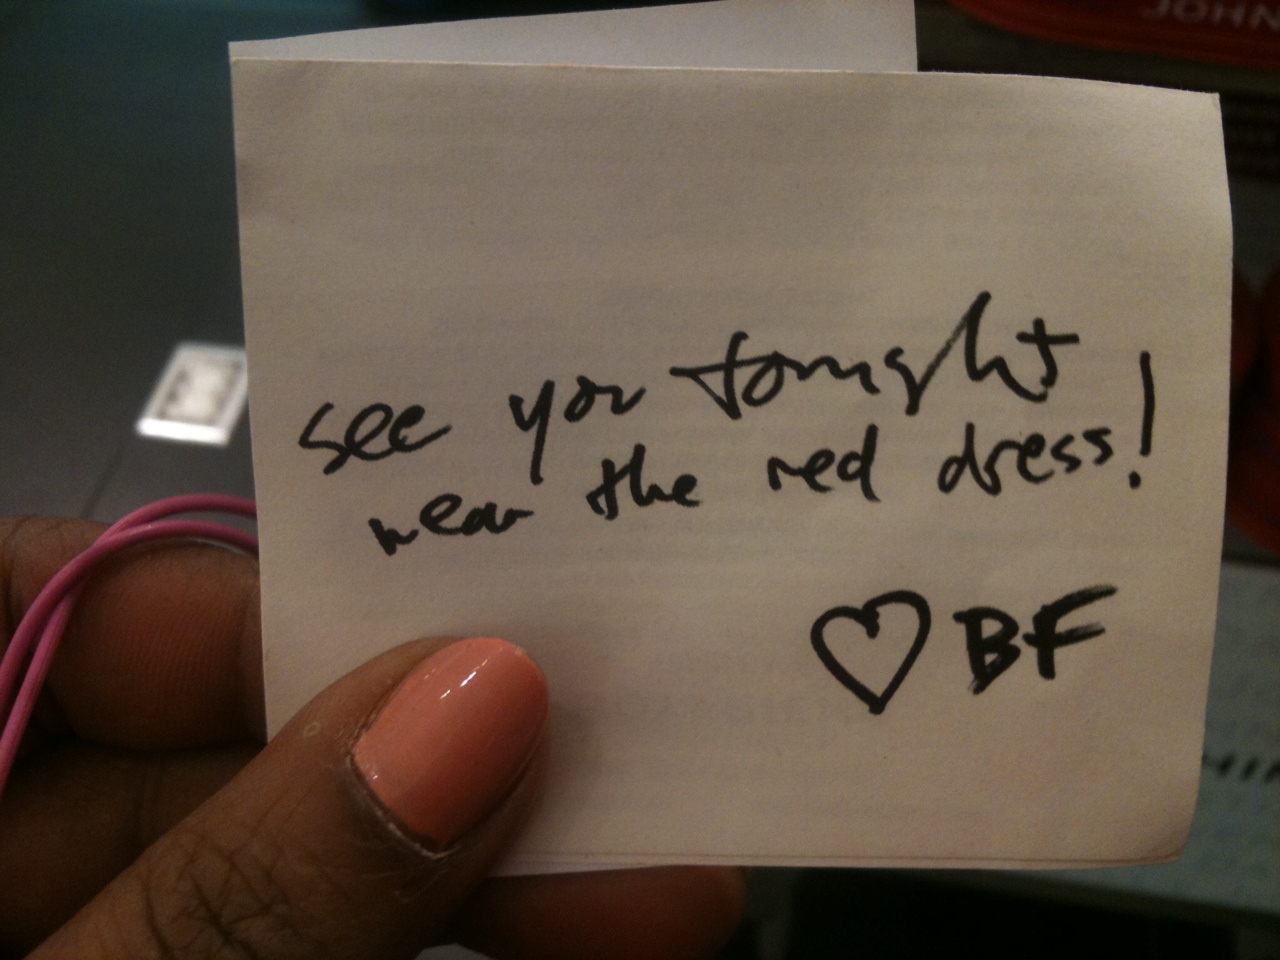 JOHN
see you tonight
wear the red dress!
♡ BF